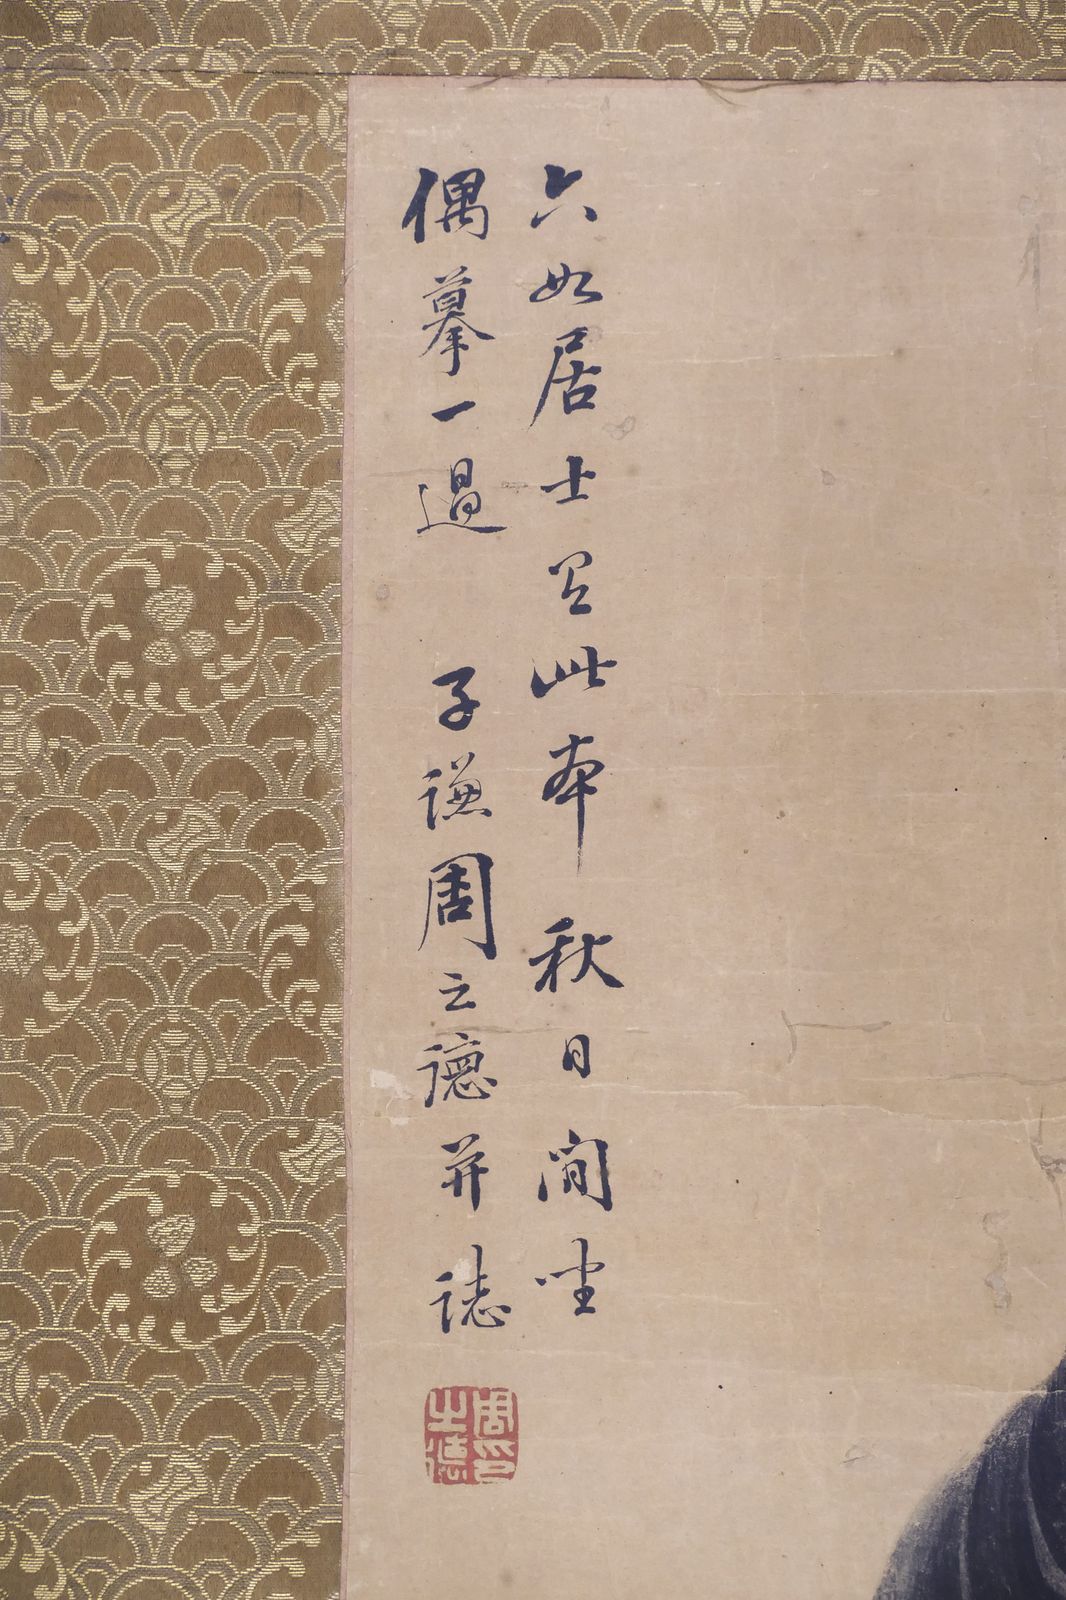 六如居士有此本秋日閒坐
偶摹一過 子謙周之德并誌
周之德印